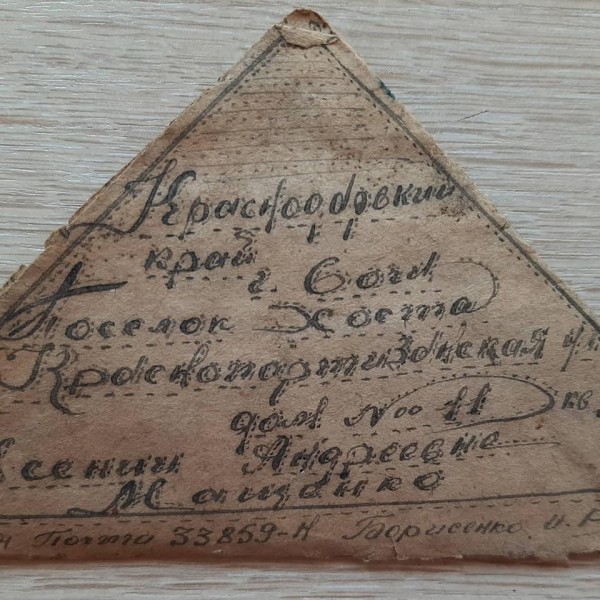 Краснодарский
край
г. Сочи
Поселок Хоста
Краснопартизанская ул
дом № 11 кв
Ксении Андреевне
Мащенко
Почта 33859-Н Борисенко И.